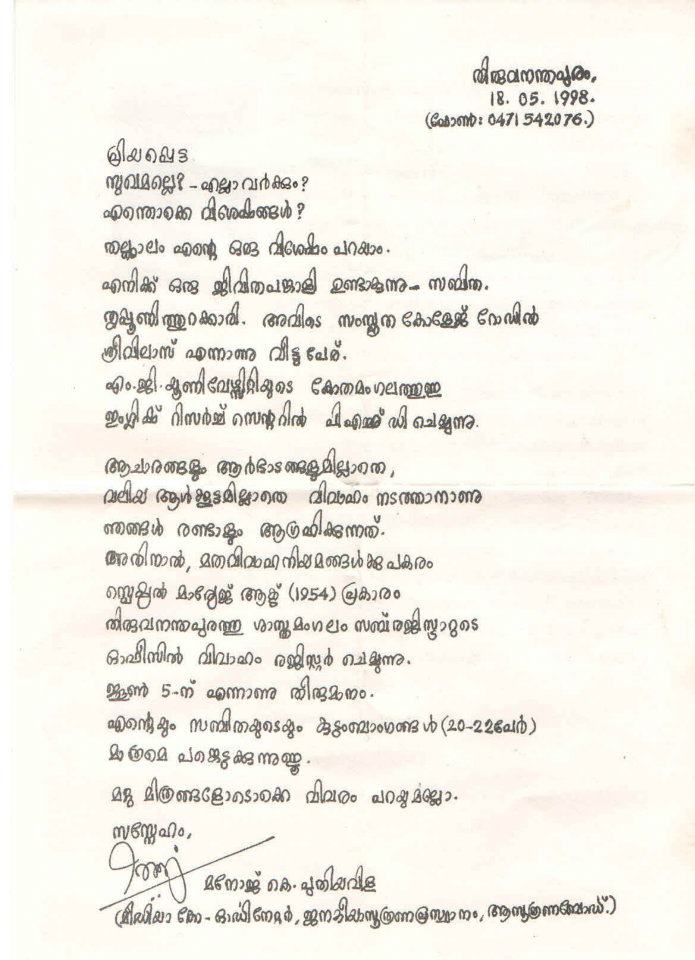 തിരുവനന്തപുരം,
18. 05. 1998.
(ഫോൺ: 0471 542076.)
പ്രിയപ്പെട്ട
സുഖമല്ലെ? - എല്ലാവർക്കും?
എന്തൊക്കെ വിശേഷങ്ങൾ?
തല്ക്കാലം എന്റെ ഒരു വിശേഷം പറയാം.
എനിക്ക് ഒരു ജീവിതപങ്കാളി ഉണ്ടാകുന്നു - സബിത.
തൃപ്പൂണിത്തുറക്കാരി. അവിടെ സംസ്കൃത കോളേജ് റോഡിൽ
ശ്രീവിലാസ് എന്നാണു വീട്ടുപേര്.
എം.ജി.യൂണിവേഴ്സിറ്റിയുടെ കോതമംഗലത്തുള്ള
ഇംഗ്ലിഷ് റിസർച്ച് സെന്ററിൽ പിഎച്ച് ഡി ചെയ്യുന്നു.
ആചാരങ്ങളും ആർഭാടങ്ങളുമില്ലാതെ,
വലിയ ആൾക്കൂട്ടമില്ലാതെ വിവാഹം നടത്താനാണു
ഞങ്ങൾ രണ്ടാളും ആഗ്രഹിക്കുന്നത്.
അതിനാൽ, മതവിവാഹനിയമങ്ങൾക്കുപകരം
സ്പെഷ്യൽ മാര്യേജ് ആക്ട് (1954) പ്രകാരം
തിരുവനന്തപുരത്തു ശാസ്തമംഗലം സബ്‌രജിസ്ട്രാറുടെ
ഓഫീസിൽ വിവാഹം രജിസ്റ്റർ ചെയ്യുന്നു.
ജൂൺ 5-ന് എന്നാണു തിരുമാനം.
എന്റെയും സബിതയുടെയും കുടുംബാംഗങ്ങൾ (20-22പേർ)
മാത്രമെ പങ്കെടുക്കുന്നുള്ളൂ.
മറ്റു മിത്രങ്ങളോടൊക്കെ വിവരം പറയുമല്ലോ.
സസ്നേഹം,
മനോജ് കെ. പുതിയവിള
(മീഡിയാ കോ-ഓഡിനേറ്റർ, ജനകീയാസൂത്രണപ്രസ്ഥാനം, ആസൂത്രണബോഡ്.)